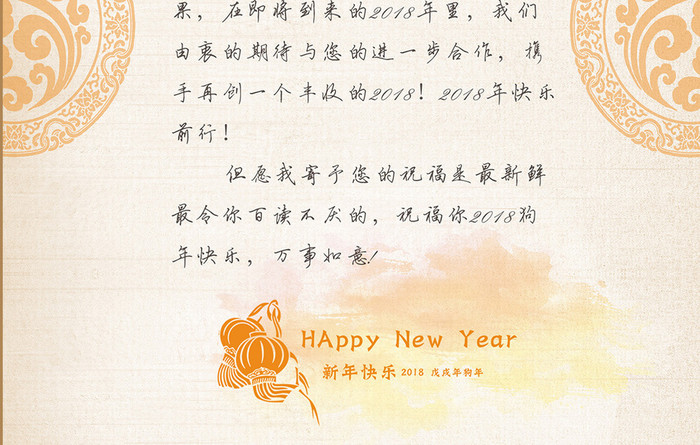 果，在即将到来的2018年里，我们
由衷的期待与您的进一步合作，携
手再创一个丰收的2018！2018年快乐
前行！
但愿我寄予您的祝福是最新鲜
最令你百读不厌的，祝福你2018狗
年快乐，万事如意！
HAppy New Year
新年快乐2018 戊戌年狗年